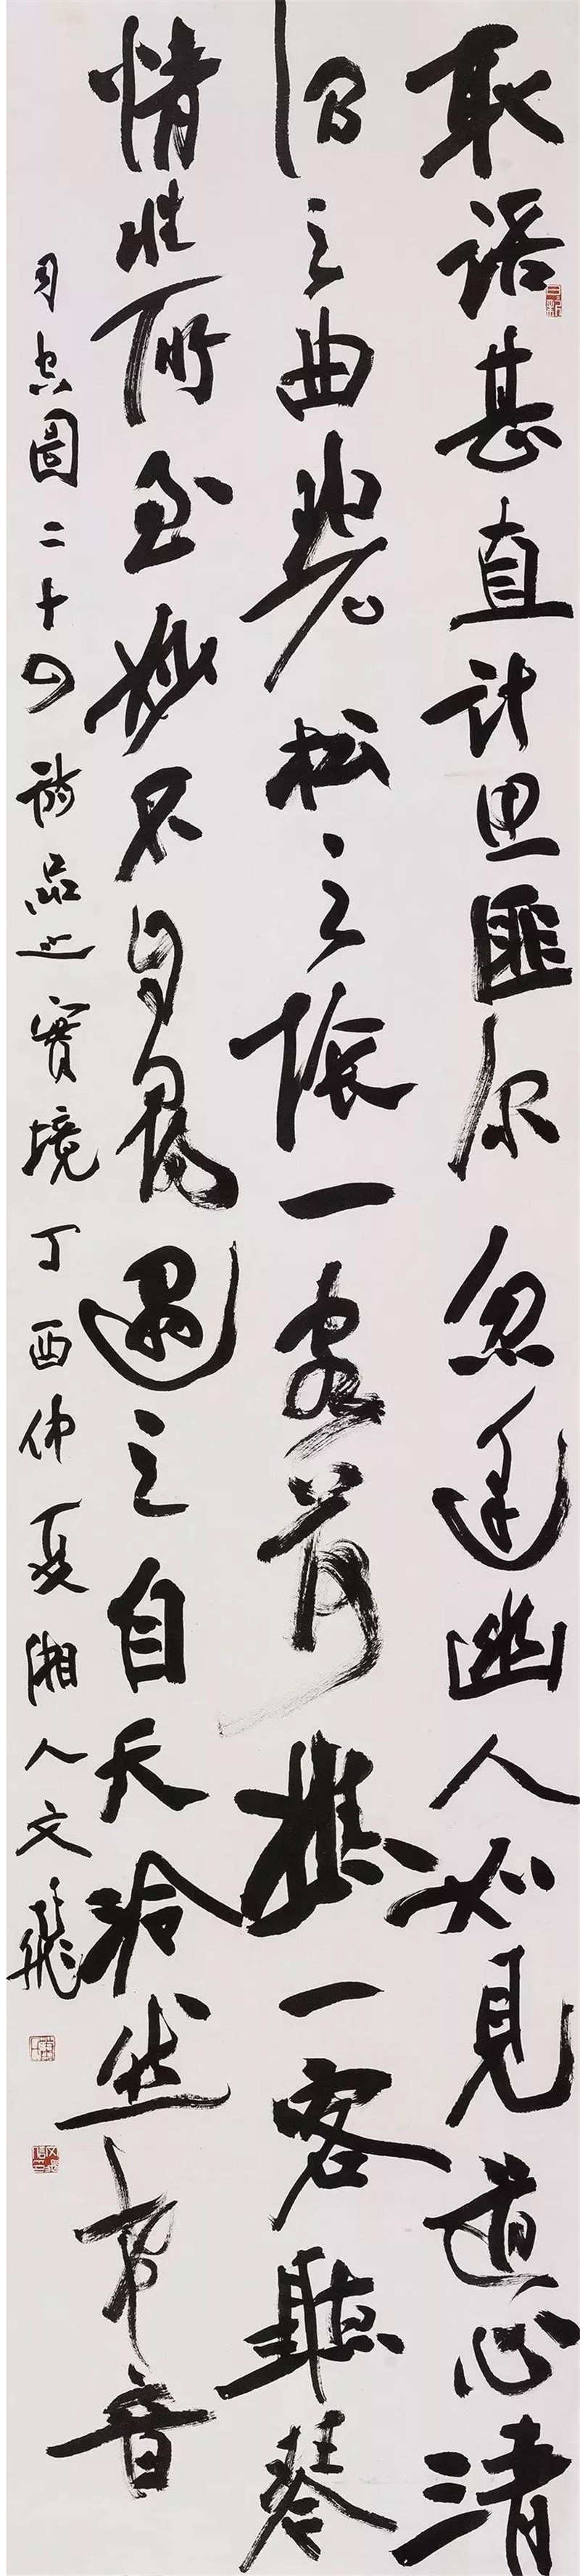 取語甚直計思匪深忽逢幽人如見道心清
澗之曲碧松之陰一客荷樵一客聽琴
情性所至妙不自尋遇之自天泠然希音
司空圖二十四詩品之實境丁酉仲夏湘人文飛